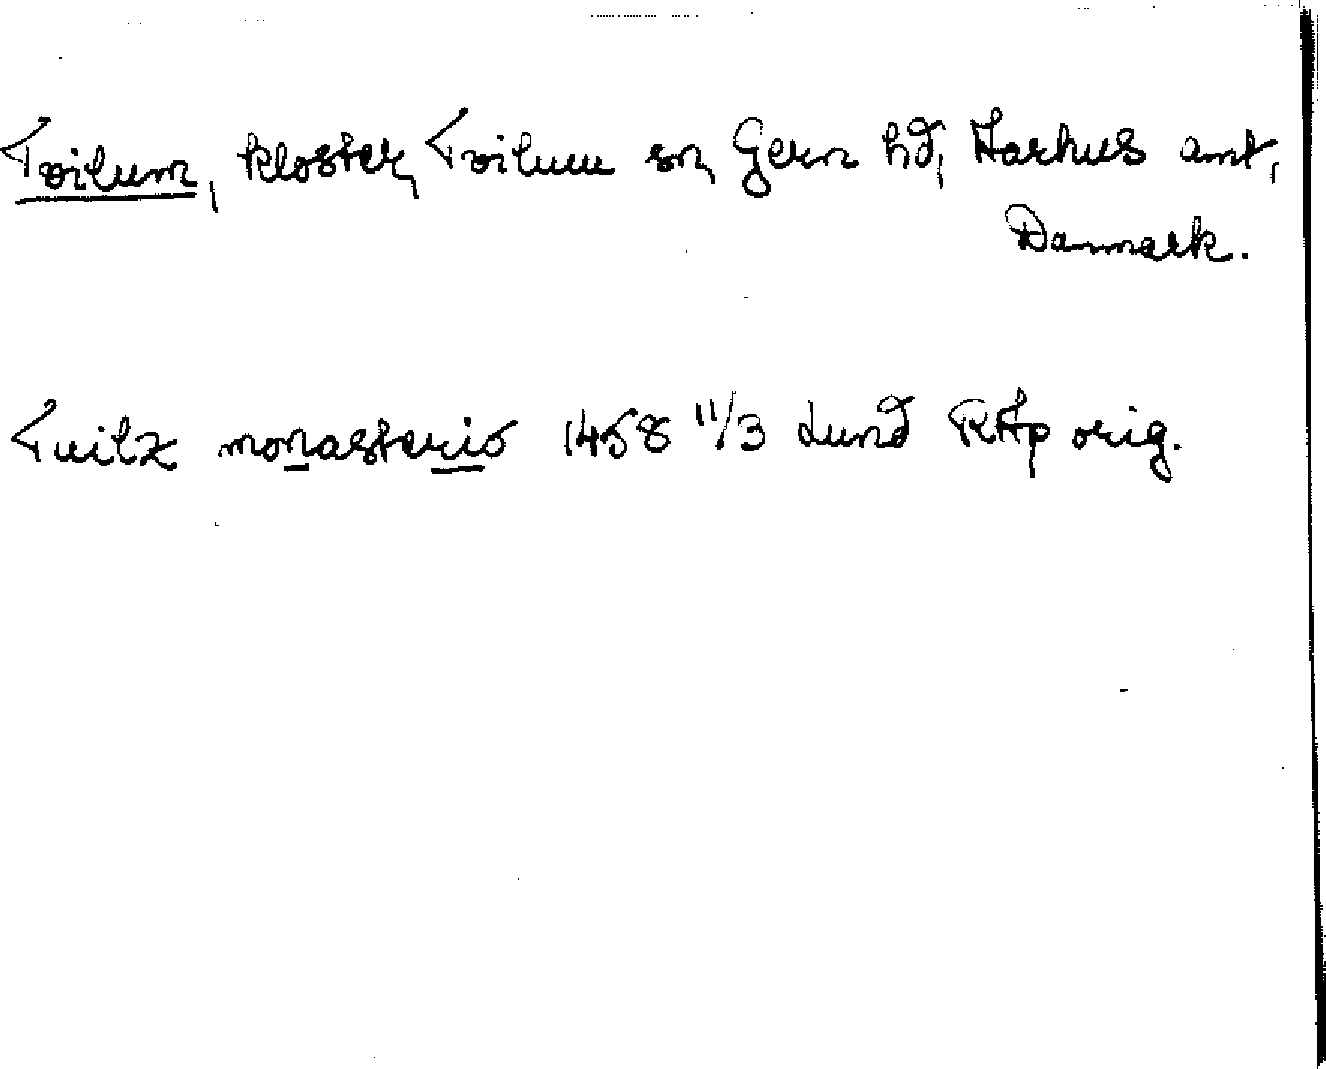 Tvilum, kloster, Tvilum sn, Gern hd, Aarhus amt,
Danmark.
Tuilz monasterio 1458 11/3 Lund RAp orig.